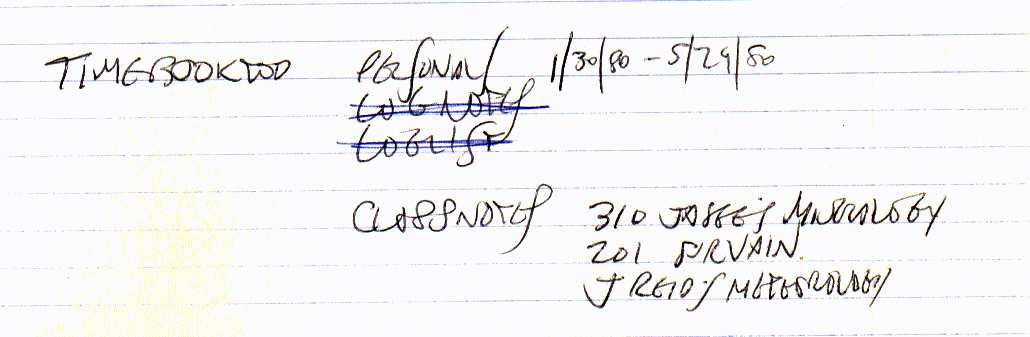 TIMEBOOK PERSONAL 1/30/80 - 5/29/80
LOG NOTES
LOGLIST
CLASSNOTES 310 'S MINEROLOGY
201
J REID'S METEOROLOGY